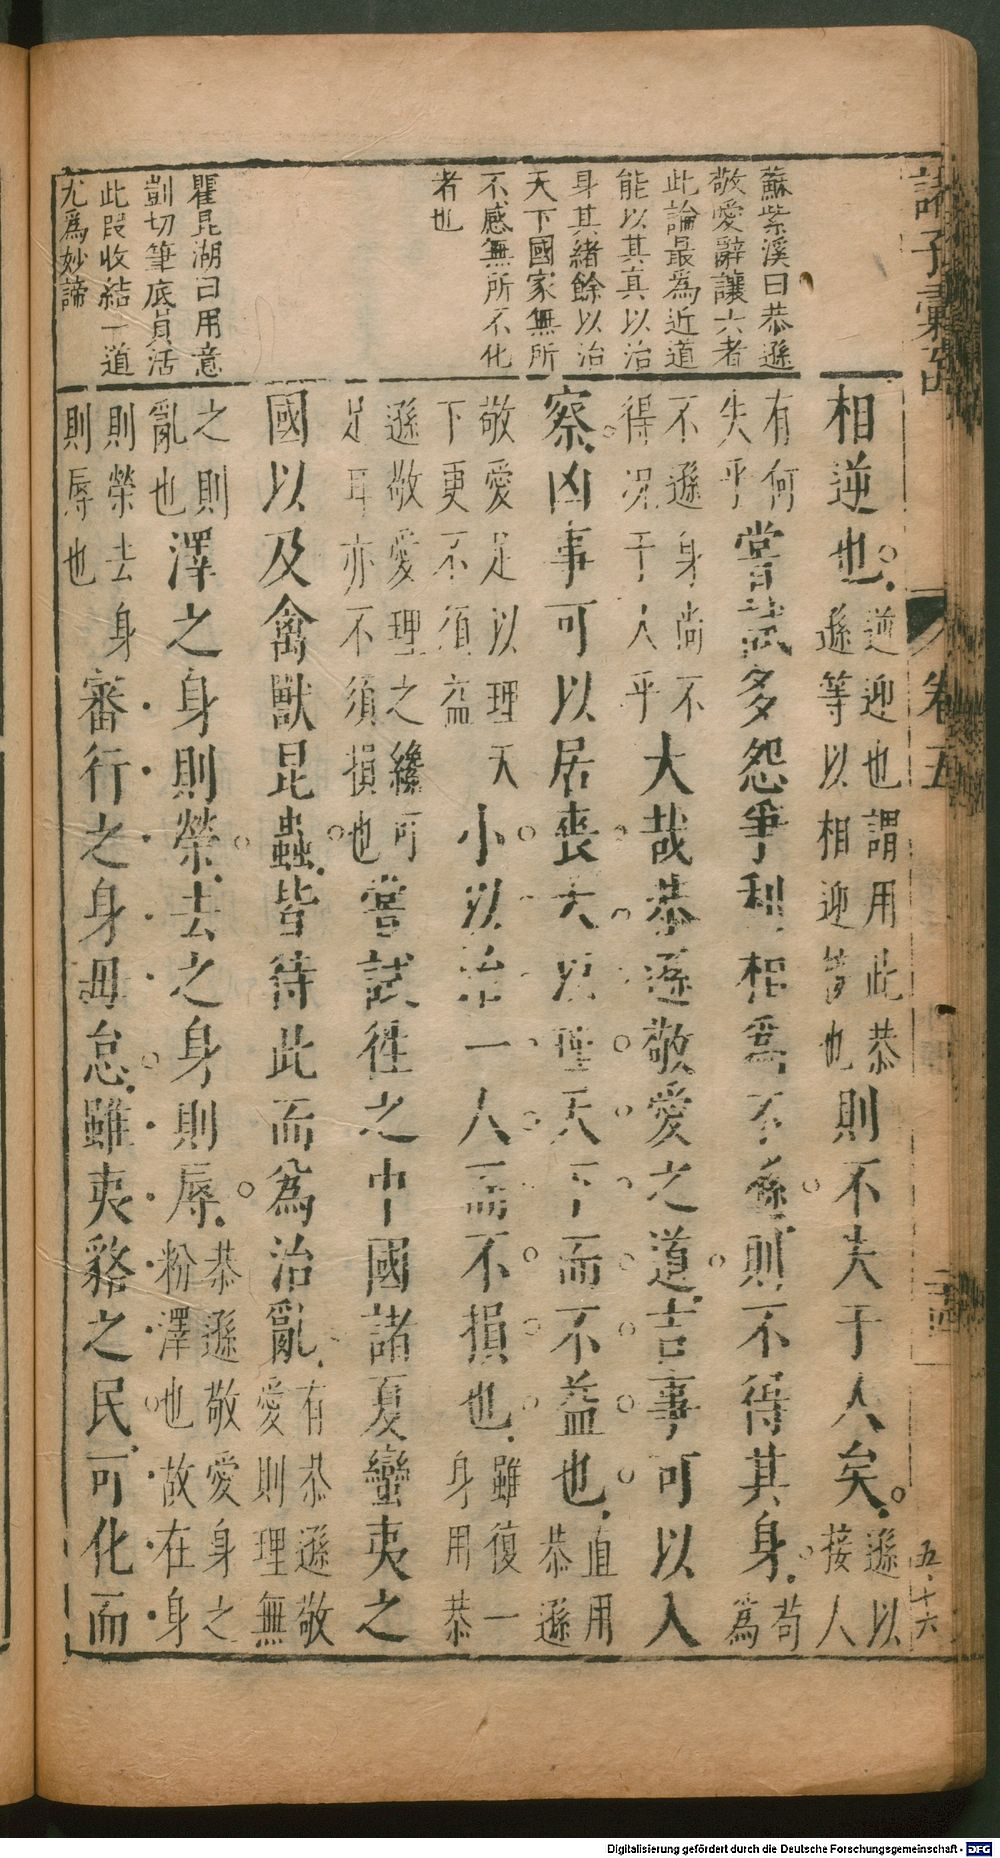 諸子彙函
卷五
二十四
五·十六
蘇紫溪曰恭遜
敬愛辭讓六者
此論最為近道
能以其真以治
身其緒餘以治
天下國家無所
不感無所不化
者也
瞿昆湖曰用意
剴切筆底員活
此段收結一道
尤為妙諦
相逆也逆迎也謂用此恭遜等以相迎導也則不失于人矣遜以接人
有何失乎嘗試多怨爭利相為不遜則不得其身苟為
不遜身尚不得況于人乎大哉恭遜敬愛之道吉事可以入
察凶事可以居喪大以理天下而不益也直用恭遜
敬愛足以理天下更不須益小以治一人而不損也雖復一身用恭
遜敬愛理之纔可足耳亦不須損也嘗試往之中國諸夏蠻夷之
國以及禽獸昆蟲皆待此而為治亂有恭遜敬愛則理無
之則亂也澤之身則榮去之身則辱恭遜敬愛身之粉澤也故在身
則榮去身則辱也審行之身毋怠雖夷貉之民可化而
Digitalisierung gefördert durch die Deutsche Forschungsgemeinschaft - DFG